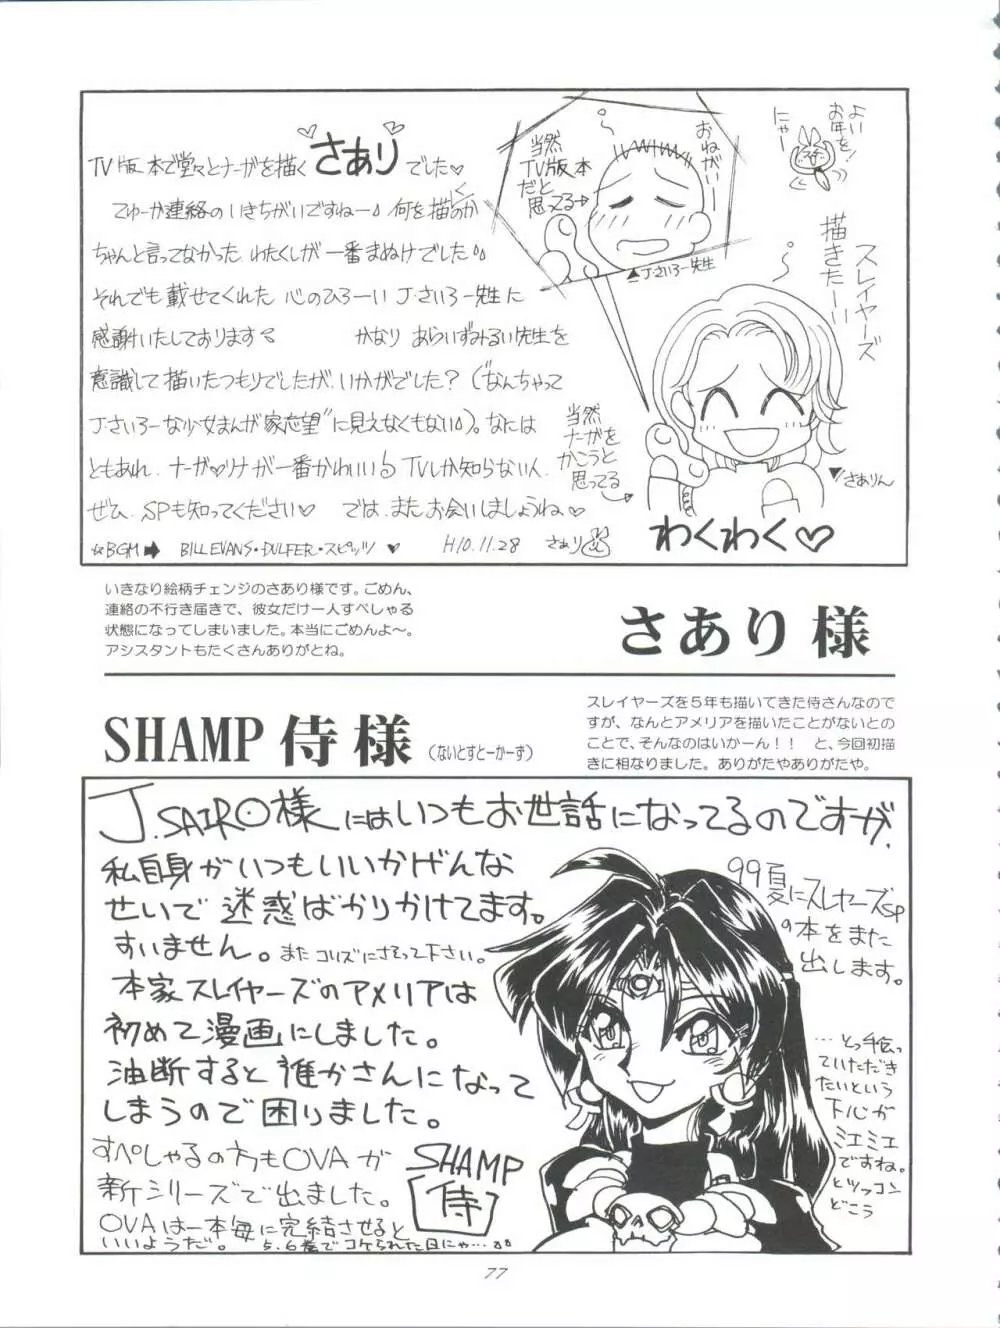 TV版本で堂々とナーガを描く さあり でした♡
てゆーか連絡のいきちがいですねー 何を描くのか
ちゃんと言ってなかった わたくしが 一番まぬけでした
それでも載せてくれた 心のひろーい J・さいろー先生に
感謝いたしております かなり あらいずみるい先生を
意識して描いたつもりでしたが、いかがでした?("なんちゃって
J・さいろーな少女まんが家志望"に見えなくもない)。なには
ともあれ、ナーガ♡リナが一番かわいい TVしか知らない人、
ぜひ、SPも知ってください♡ では、またお会いしましょうね♡
☆BGM➡ BILL EVANS・DULFER・スピッツ ♥ H10.11.28 さあり
当然
TV版本
だと
思ってる→
おねがいー
▲J・さいろー先生
よい
お年を!
にゃー
スレイヤーズ
描きたーい
当然
ナーガを
かこうと
思ってる
▼さありん
わくわく♡
いきなり絵柄チェンジのさあり様です。ごめん、
連絡の不行き届きで、彼女だけ一人すぺしゃる
状態になってしまいました。本当にごめんよ〜。
アシスタントもたくさんありがとね。
さあり 様
SHAMP 侍 様(ないとすとーかーず)
スレイヤーズを5年も描いてきた侍さんなので
すが、なんとアメリアを描いたことがないとの
ことで、そんなのはいかーん!! と、今回初描
きに相なりました。ありがたやありがたや。
J.SAIRO様にはいつもお世話になってるのですが、
私自身がいつもいいかげんな
せいで 迷惑ばかりかけてます。
すいません。またコリズにさそって下さい。
本家スレイヤーズのアメリアは
初めて漫画にしました。
油断すると 誰かさんになって
しまうので 困りました。
すぺしゃるの方もOVAが
新シリーズで出ました。
OVAは一本毎に完結させると
いいようだ。 5.6巻でコケられた日にゃ…
SHAMP
[侍]
99夏にスレイヤーズSP
の本をまた
出します。
…とっ手伝っ
ていただき
たいという
下心が
ミエミエ
ですね。
とツッコン
どこう
77